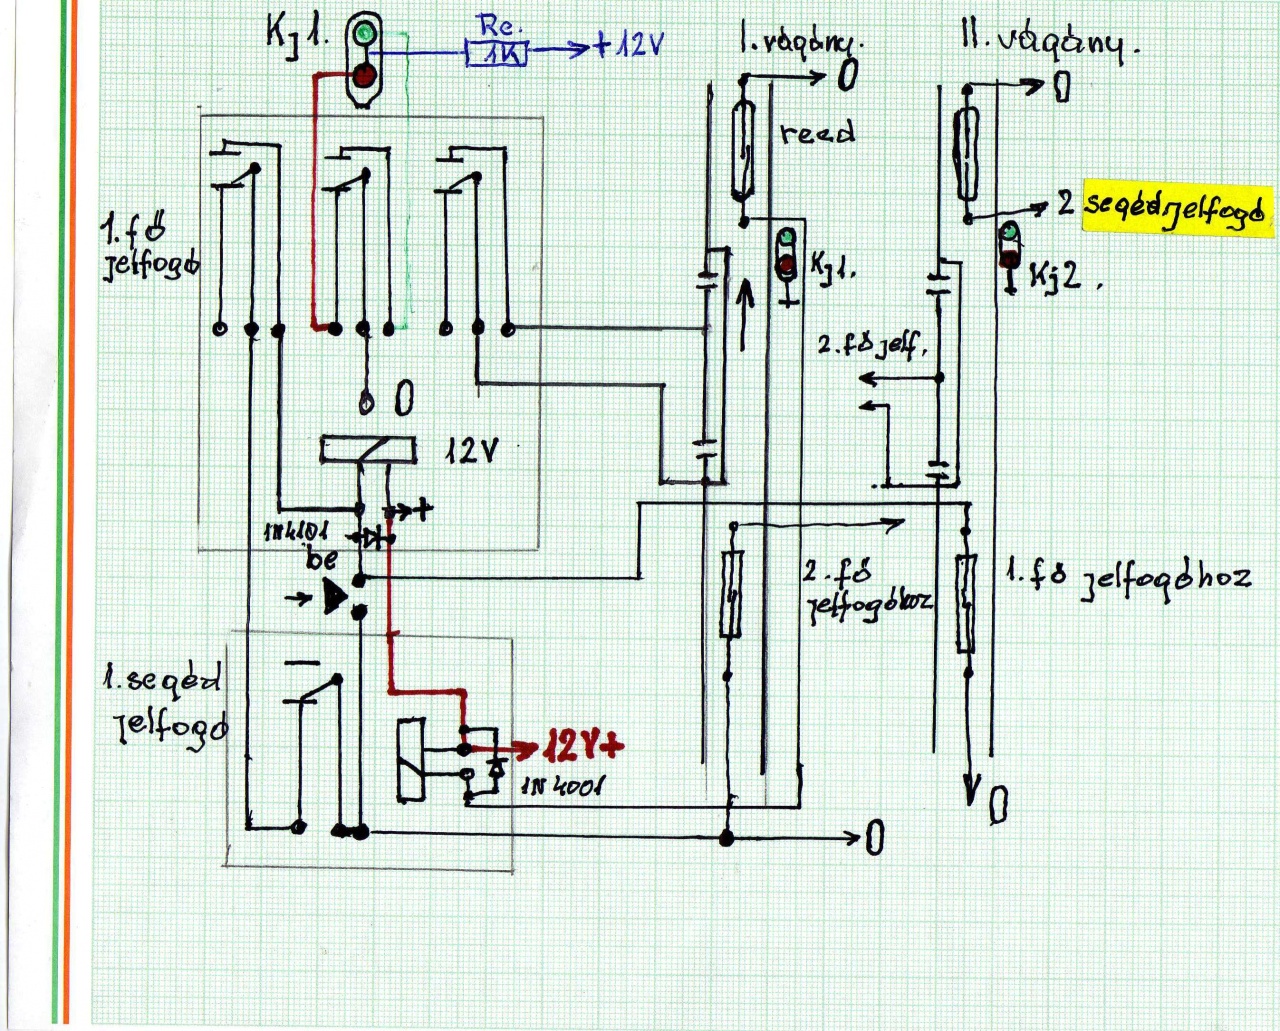 Kj1.
Re.
1K
+12V
I. vágány.
0
II. vágány.
0
reed
2 segédjelfogó
1. fő
jelfogó
Kj1.
Kj2.
2. fő jelf.
0
12V
+
1N4101
be
2. fő
jelfogóhoz
1. fő jelfogóhoz
1. segéd
jelfogó
12V+
1N4001
0
0